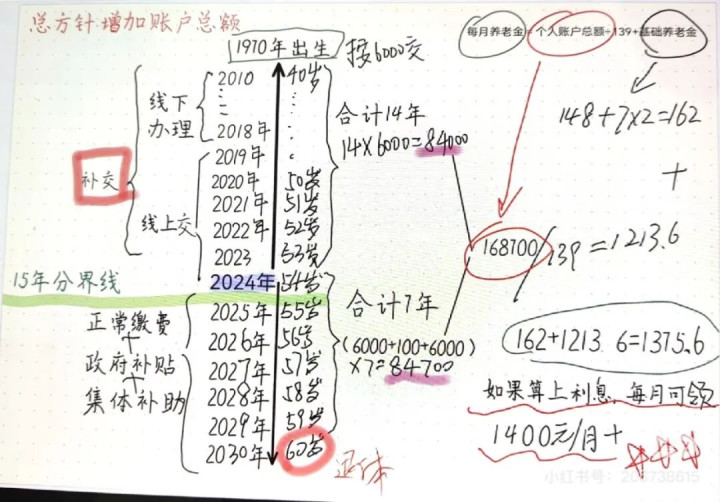 总方针:增加账户总额
每月养老金=个人账户总额÷139+基础养老金
1970年出生
按6000交
2010 40岁
线下办理
2018年
2019年
补交
线上交
2020年 50岁
2021年 51岁
2022年 52岁
2023 53岁
合计14年
14×6000=84000
148+7×2=162
+
168700/139=1213.6
15年分界线
2024年 54岁
2025年 55岁
2026年 56岁
2027年 57岁
2028年 58岁
2029年 59岁
2030年 60岁
退休
正常缴费
+
政府补贴
+
集体补助
合计7年
(6000+100+6000)
×7=84700
162+1213.6=1375.6
如果算上利息,每月可领
1400元/月+